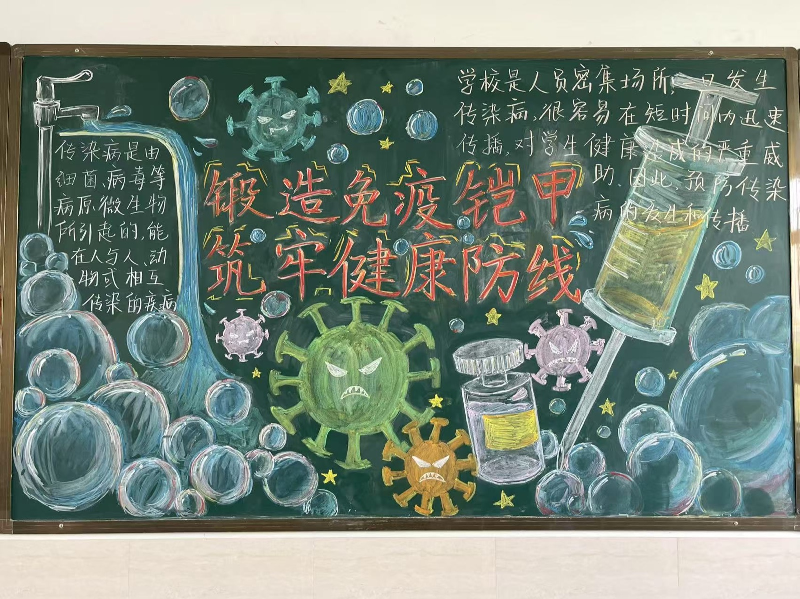 锻造免疫铠甲
筑牢健康防线
传染病是由
细菌、病毒等
病原微生物
所引起的,能
在人与人、动
物或相互
传染的疾病
学校是人员密集场所,一旦发生
传染病,很容易在短时间内迅速
传播,对学生健康造成的严重威
助、因此、预防传染
病的发生和传播